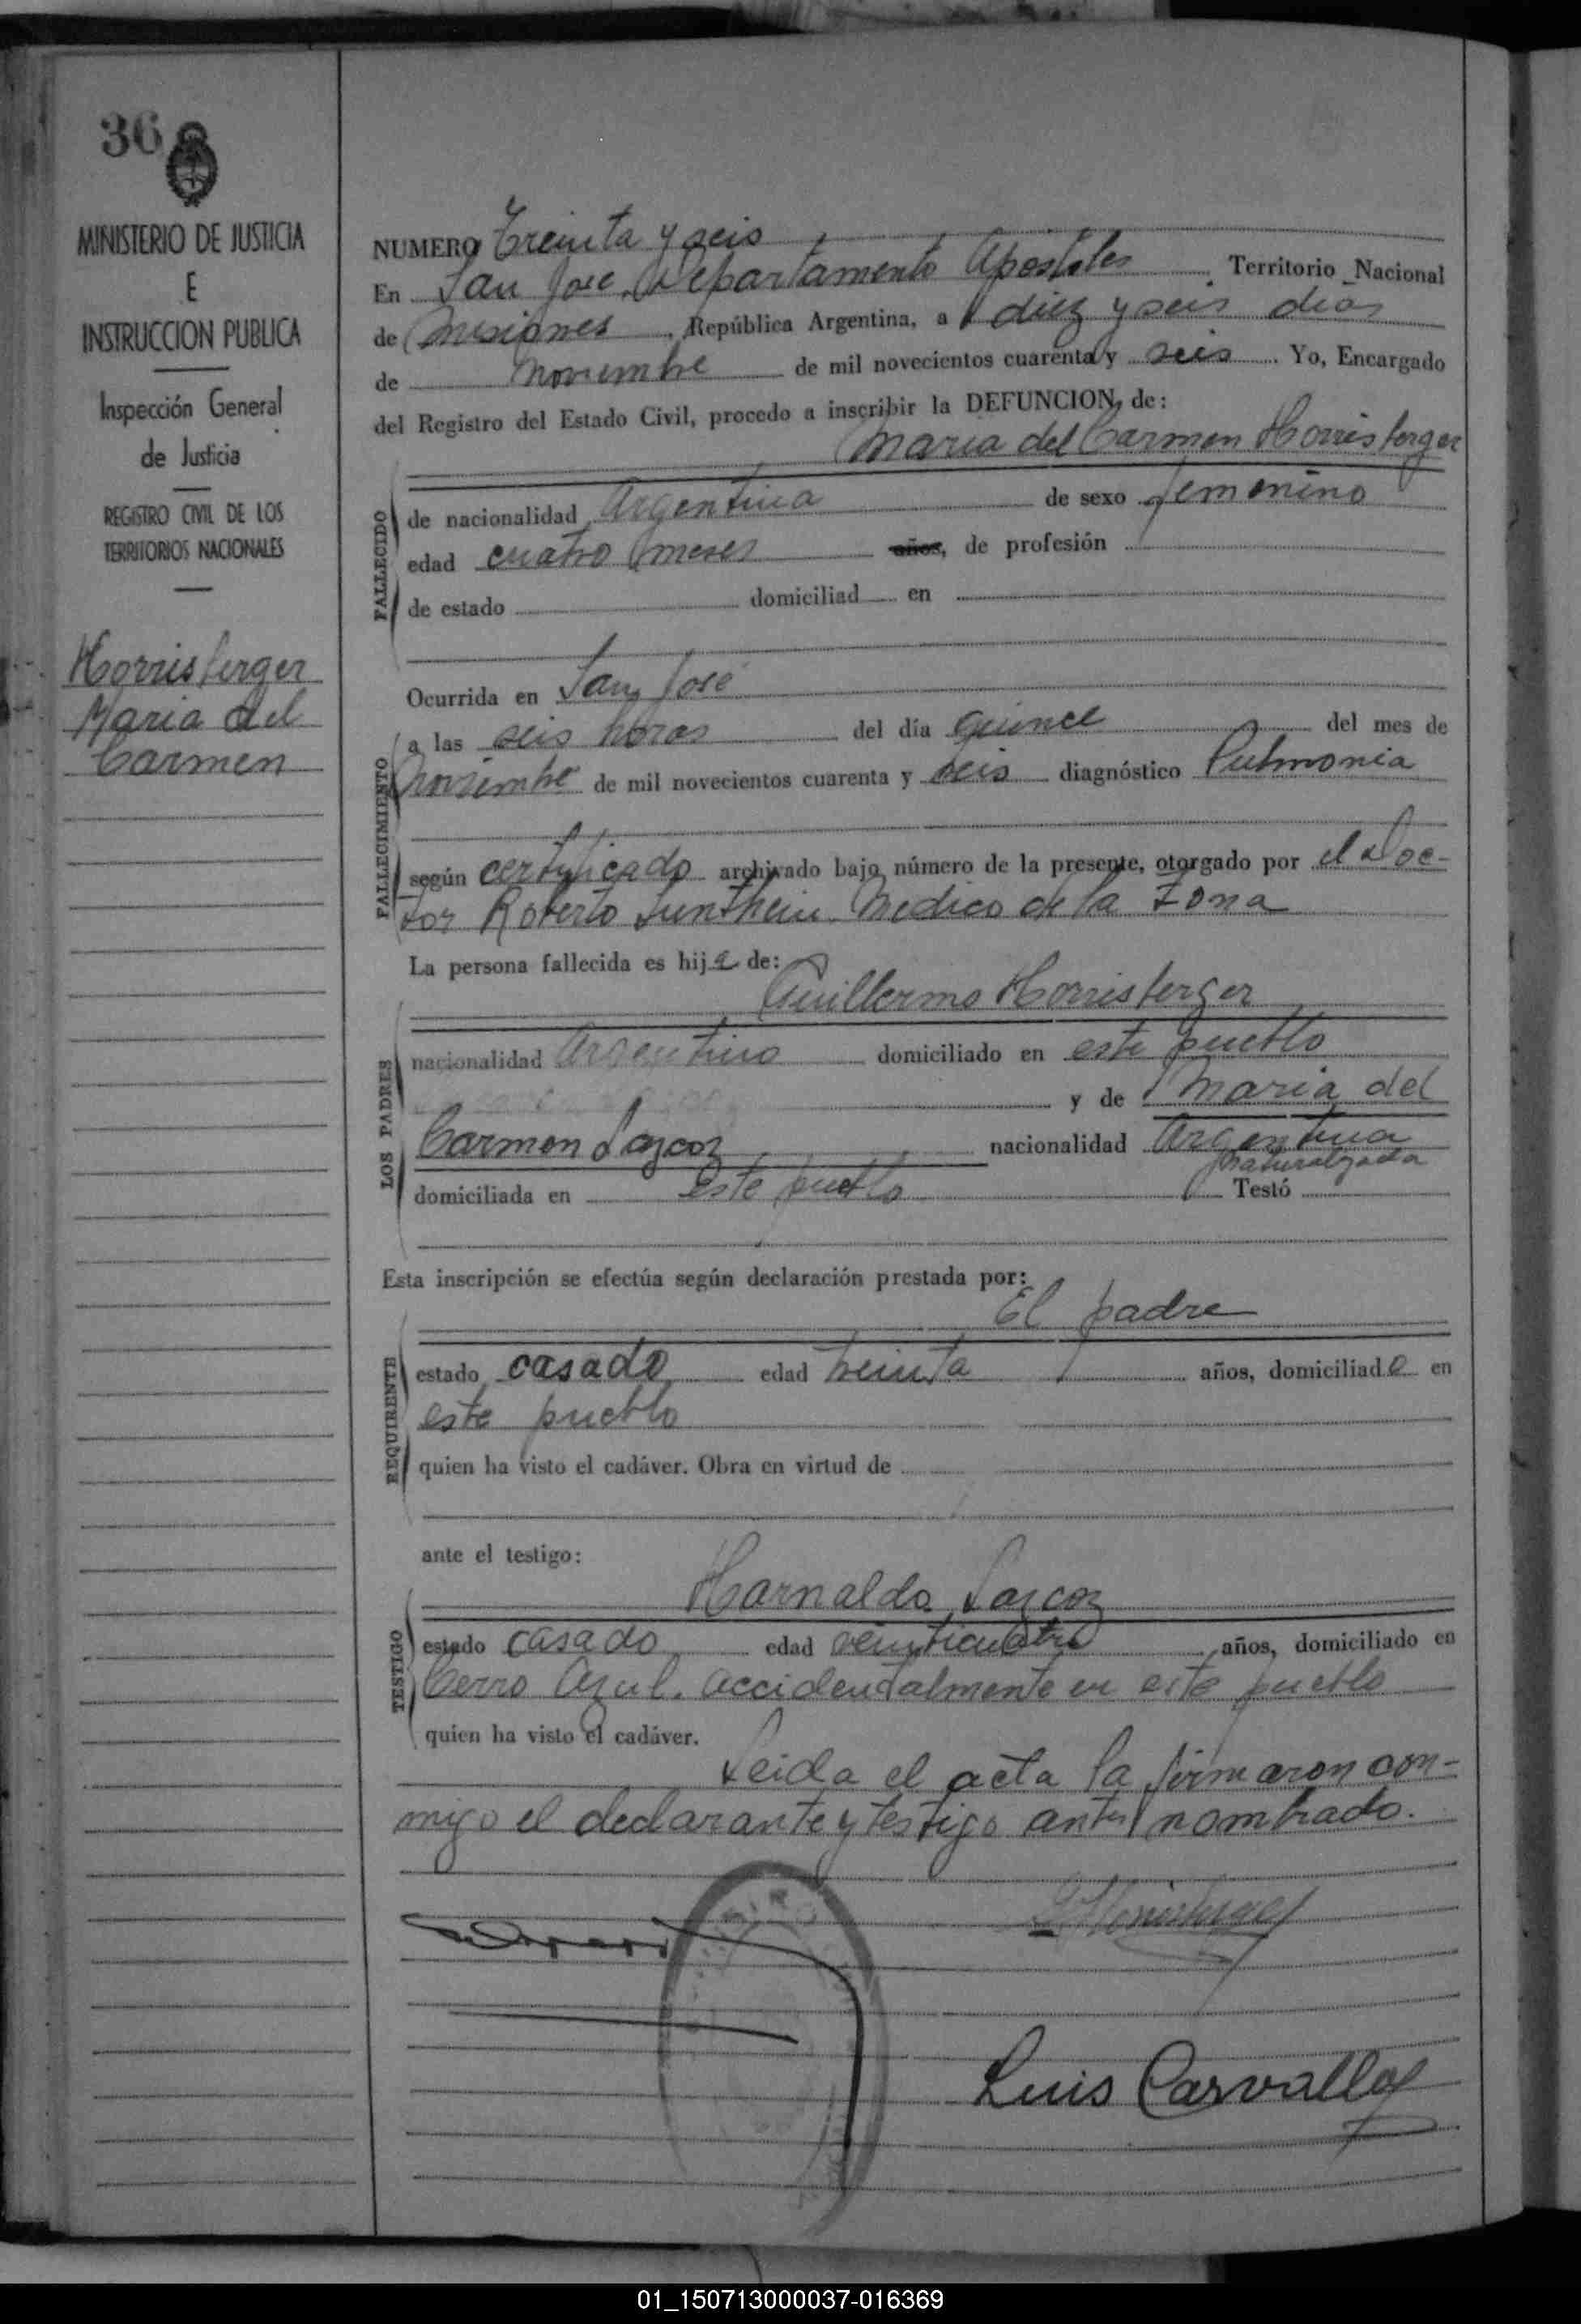 36
MINISTERIO DE JUSTICIA
E
INSTRUCCION PUBLICA
Inspección General
de Justicia
REGISTRO CIVIL DE LOS
TERRITORIOS NACIONALES
Horrisberger
Maria del
Carmen
NUMERO Treinta y seis
En San José, Departamento Apóstoles Territorio Nacional
de Misiones, República Argentina, a diez y seis dias
de Noviembre de mil novecientos cuarenta y seis. Yo, Encargado
del Registro del Estado Civil, procedo a inscribir la DEFUNCION de:
Maria del Carmen Horrisberger
FALLECIDO
de nacionalidad Argentina de sexo femenino
edad cuatro meses años, de profesión
de estado domiciliad en
Ocurrida en San José
FALLECIMIENTO
a las seis horas del día quince del mes de
Noviembre de mil novecientos cuarenta y seis diagnóstico Pulmonia
según certificado archivado bajo número de la presente, otorgado por el Doc-
tor Roberto Médico de la Zona
La persona fallecida es hija de:
Guillermo Horrisberger
LOS PADRES
nacionalidad Argentino domiciliado en este pueblo
y de Maria del
Carmen Lazcoz nacionalidad Argentina
naturalizada
domiciliada en este pueblo Testó
Esta inscripción se efectúa según declaración prestada por:
El padre
REQUIRENTE
estado casado edad treinta años, domiciliado en
este pueblo
quien ha visto el cadáver. Obra en virtud de
ante el testigo:
Harnaldo Lazcoz
TESTIGO
estado casado edad veinticuatro años, domiciliado en
Cerro Azul. accidentalmente en este pueblo
quien ha visto el cadáver.
Leida el acta la firmaron con-
migo el declarante y testigo antes nombrado.
Luis Carvallo
01_150713000037-016369